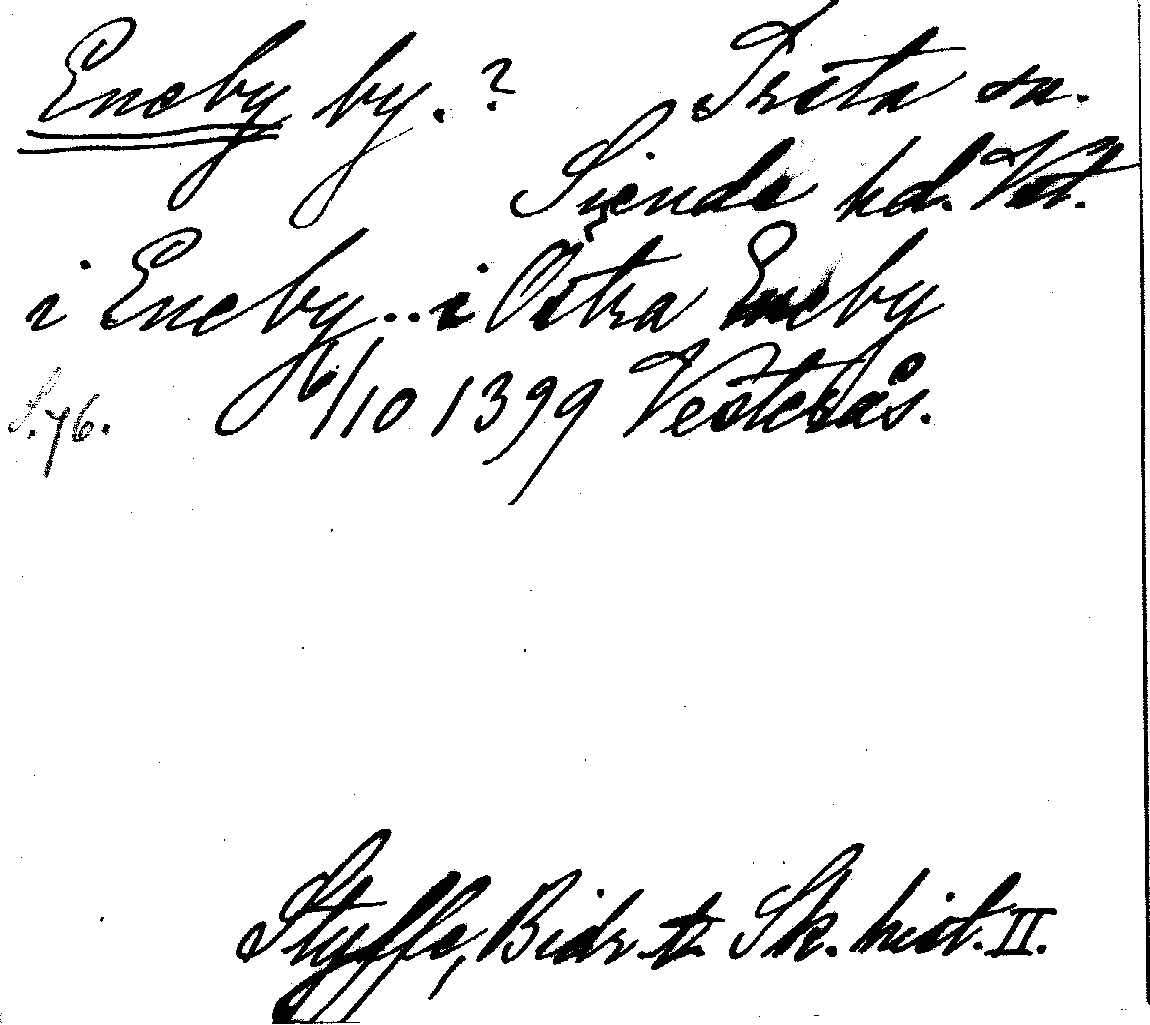 Eneby by.? Irsta sn.
Siende hd. Vstm.
i Eneby.. i Östra Eneby
S. 76. 6/10 1399 Vesterås.
Styffe, Bidr. t. Sk. hist. II.